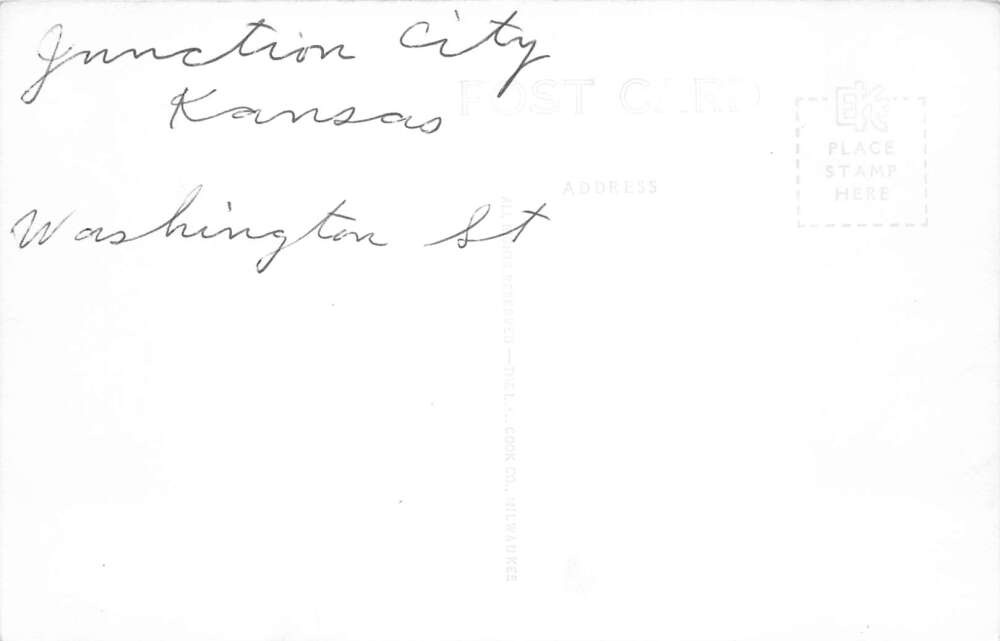 Junction City
Kansas
Washington St
POST CARD
ADDRESS
EKC
PLACE
STAMP
HERE
RESERVED — THE L. L. COOK CO., MILWAUKEE